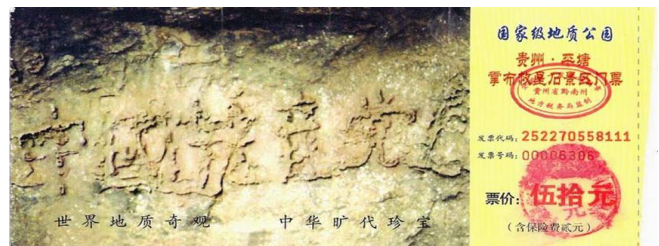 中國共産党亡
世界地质奇观 中华旷代珍宝
国家级地质公园
贵州·平塘
掌布救星石景区门票
贵州省黔南州
地方税务局监制
发票代码: 252270558111
发票号码: 00005306
票价: 伍拾元
(含保险费贰元)